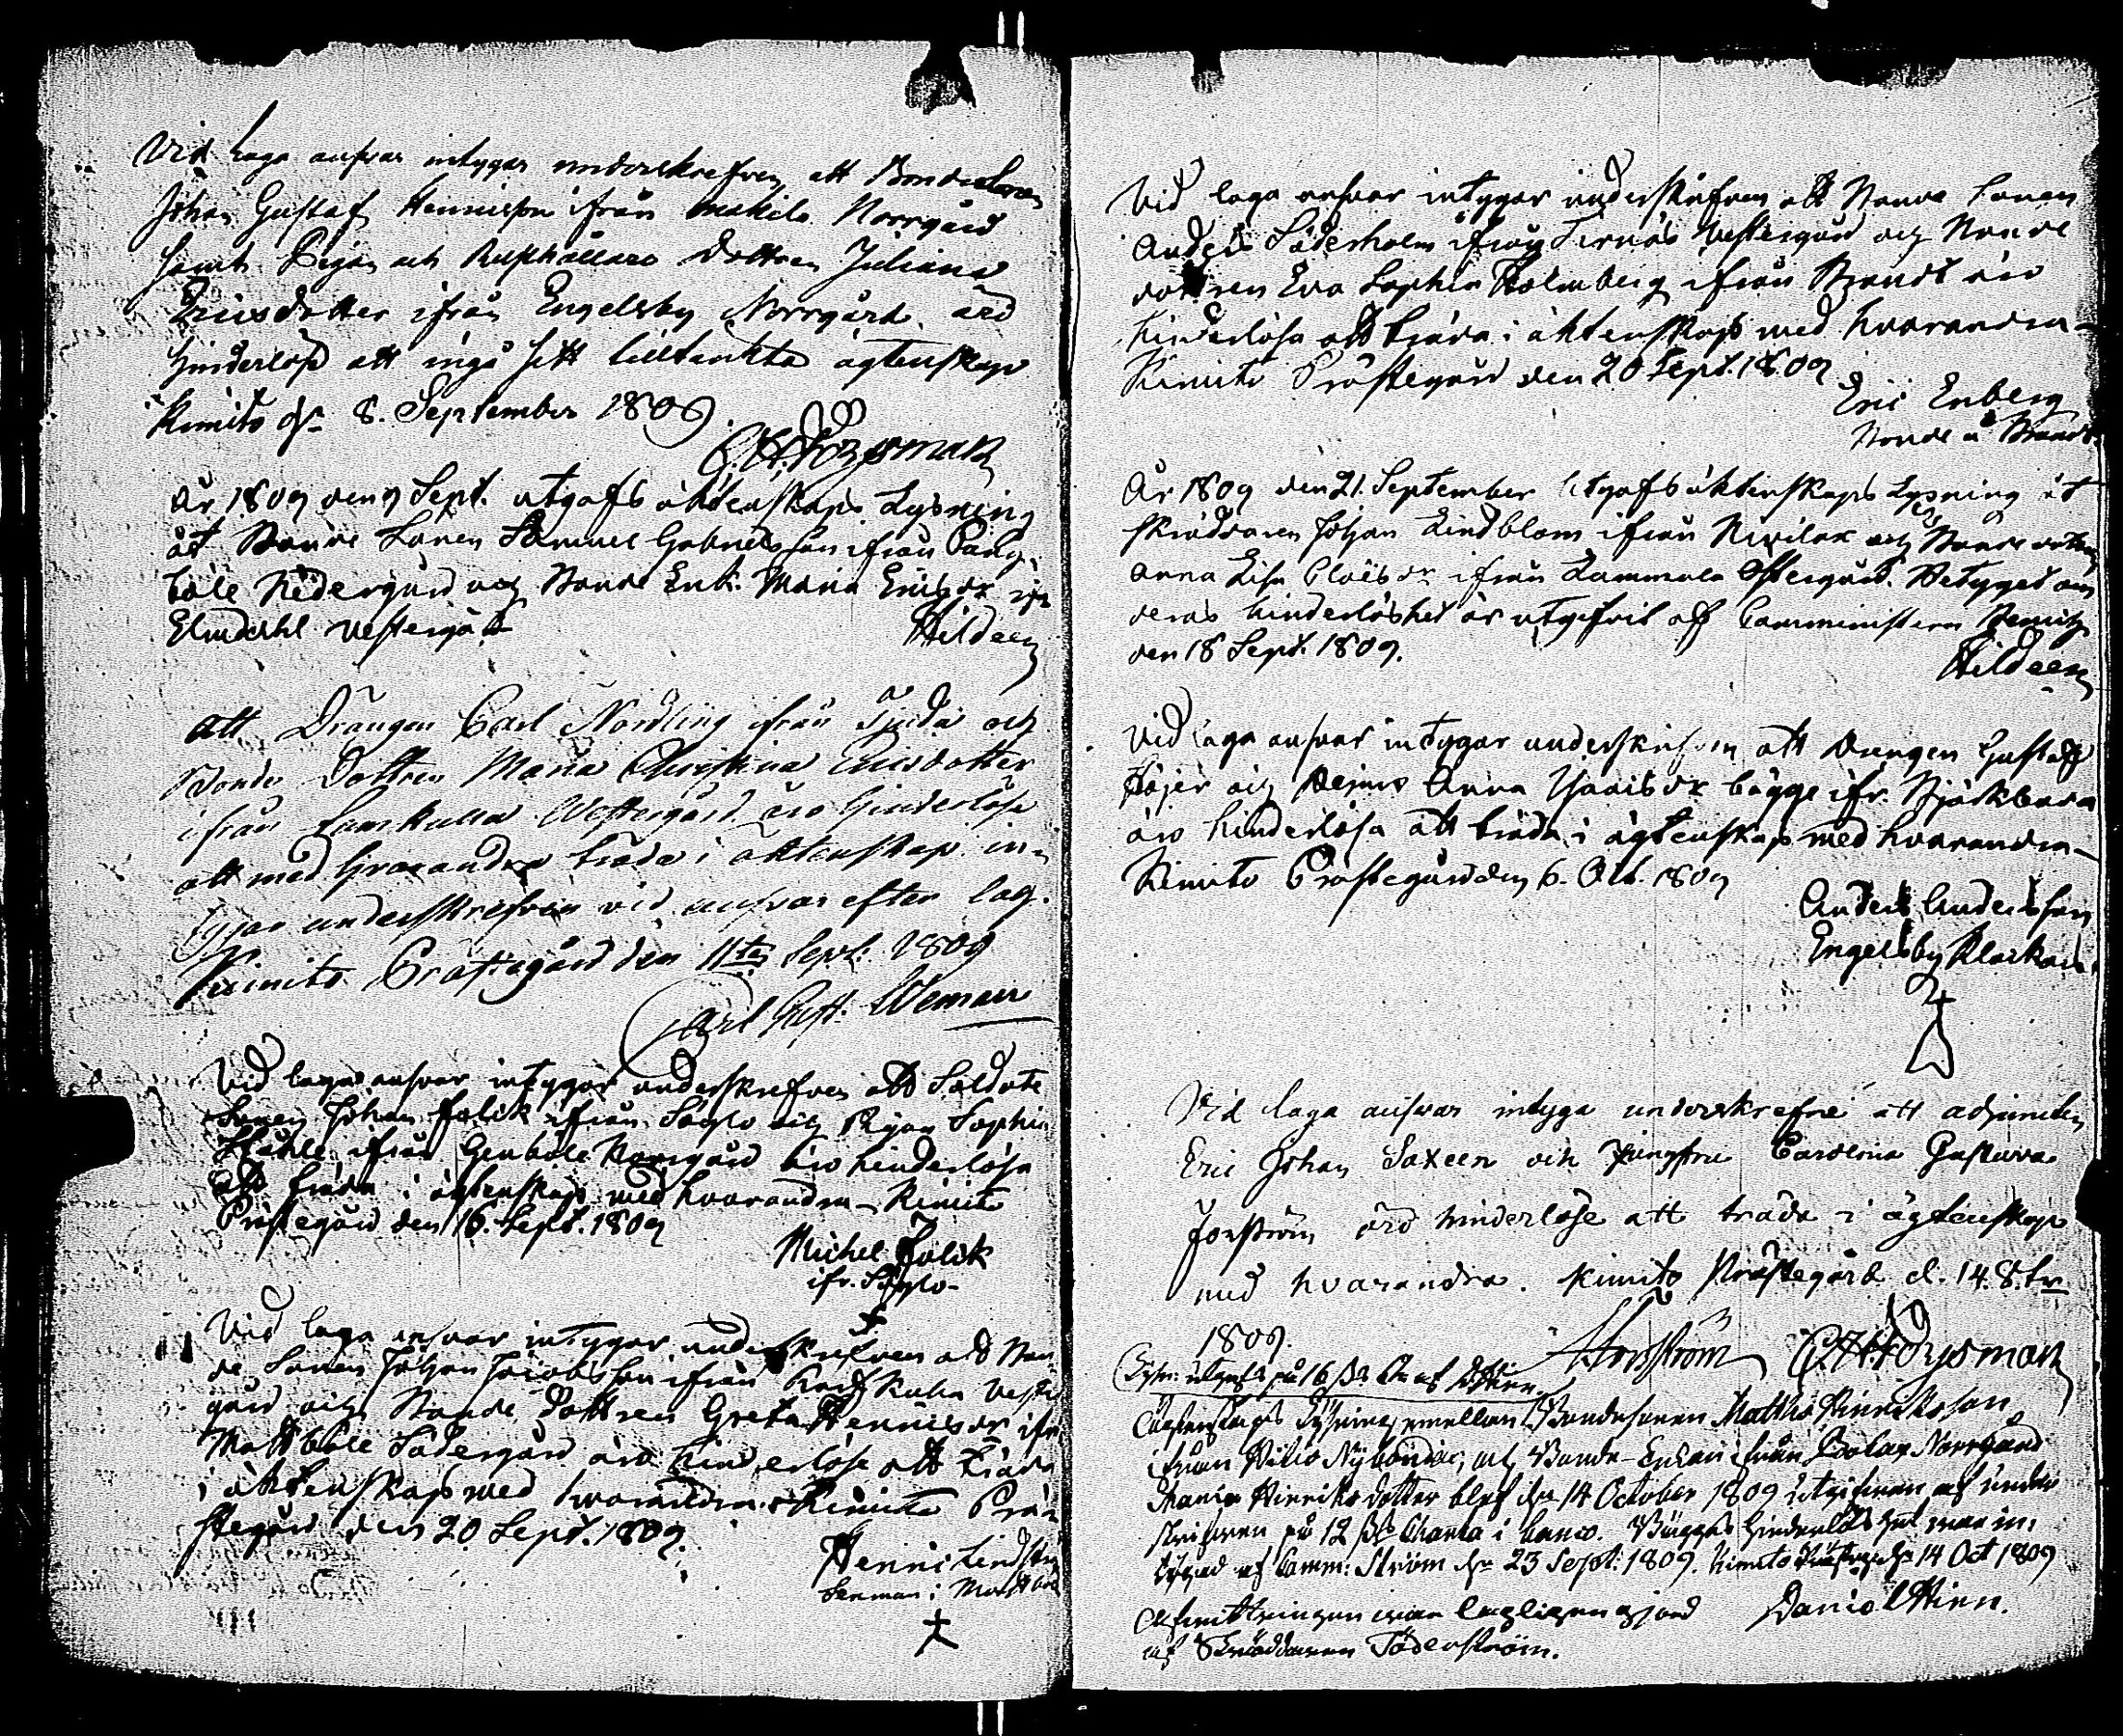 Vid Laga ansvar intygar underskrefven, att Bondesonen
Johan Gustaf Hennisson ifrån Makila Norrgård
samt Pigan och Rusthållare dottren Juliana
Ericsdotter ifrån Engelsby Norrgård, äro
hinderlöse att ingå sitt tilltänkta ägtenskap
Kimito dn 8. September 1809.
År 1809 den 9 Sept. utgafs äktenskaps Lysning
åt Bonde Sonen Samuel Gabrielsson ifrån Pang-
böle Nedergård och Bonde Enk: Maria Ericsdr ifr
Elmdahl Vestergård
Hildeen
att Drängen Carl Nordling ifrån Tjuda och
Bonde Dottren Maria Christina Ericsdotter
ifrån Lamkulla Westergård äro hinderlöse
att med hvarandra träda i äktenskap in-
tygar underskrefven vid ansvar efter lag.
Kimito Prästegård den 11te Sept. 1809
Carl Gust. Weman
Vid laga ansvar intygar underskrefven att Soldate
Sonen Johan Falik ifrån Söglo och Pigan Sophia
Ståhle ifrån Genböle Norrgård äro hinderlösa
att träda i ägtenskap med hvarandra Kimito
Prästegård den 16. Sept. 1809
Michel Falik
ifr. Söglo
Vid laga ansvar intygar underskrefven att Bon-
de Sonen Johan Jacobsson ifrån Vester
gård och Bonde Dottren Greta Hennicsdr ifr.
Mattböle Södergård äro hinderlöse att träda
i äktenskap med hvarandra. Kimito Prä-
stegård den 20 Sept. 1809.
Henric Lindst
i
Vid laga ansvar intygar underskrefven att Bonde Sonen
Anders Söderholm ifrån Ternäs Vestergård och Bonde
dottren Eva Sophia Holmberg ifrån Brandt äro
hinderlösa att träda i äktenskap med hvarandra
Kimito Prästegård den 20 Sept. 1809
Eric Enberg
Bonde å Brandt.
År 1809 den 21. September utgafs äktenskaps Lysning åt
skräddaren Johan Lindblom ifrån Nivilax och Bonde dottren
Anna Lisa Claësdr ifrån Lammala Östergård. Betyget om
deras hinderlöshet är utgifvit af Comministern
den 18 Sept. 1809.
Hildeen
Vid laga ansvar intygar underskrefven att Drengen Gustaf
Höjer och Anna Isaacsdr bägge ifr. Björkboda
äro hinderlösa att träda i ägtenskap med hvarandra
Kimito Prästegård den 6. Oct. 1809
Anders Andersson
Engelsby Klackars
Vid laga ansvar intyga underskrefne att adjuncten
Eric Johan Saxeen och Jungfru Carolina Gustava
Forström äro hinderlöse att träda i ägtenskap
med hvarandra. Kimito Prästegård d. 14. 8.br
1809.
Forström
Lysn: utgafs på 16 af
Ägtenskaps Lysning emellan Bondesonen Matths Hinriksson
ifrån Nybonda, och Bonde-Enkan ifrån Norrgård
Maria Hinriksdotter blef den 14 October 1809 utgifven af under
skrifven på 12 Charta i banco. Bägges hinderlöshet var in-
tygad af Comm: Ström dn 23 Sept: 1809. Kimito dn 14 Oct 1809
Afvittringen var lagligen gjord Daniel Hirn.
af Skräddaren Söderström.